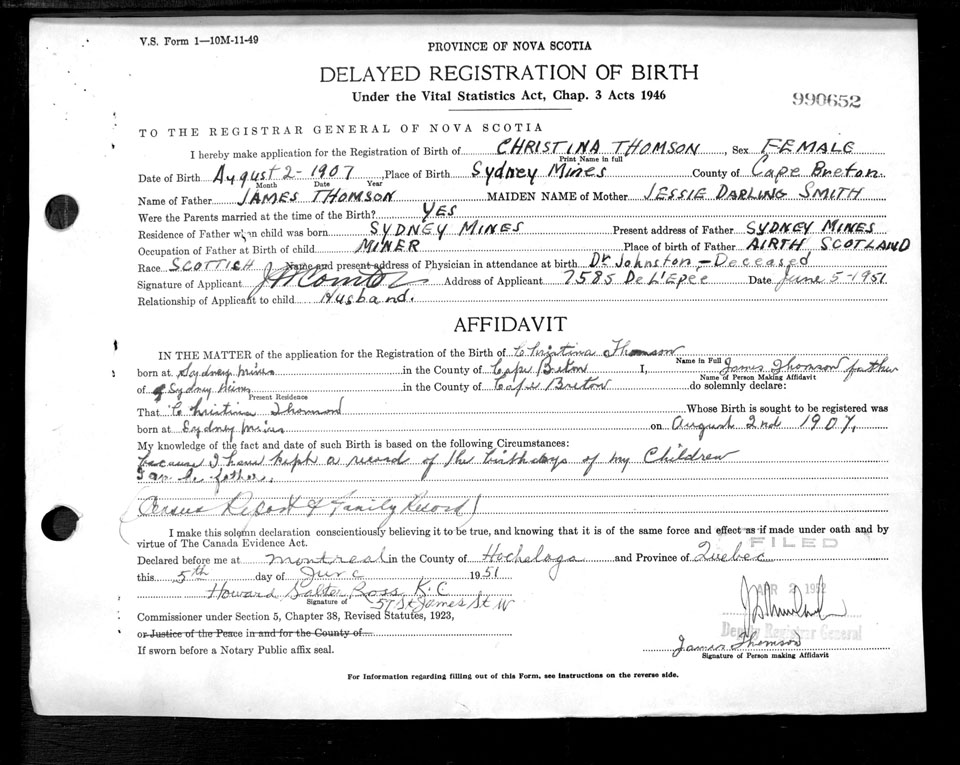 V.S. Form 1—10M-11-49
PROVINCE OF NOVA SCOTIA
DELAYED REGISTRATION OF BIRTH
Under the Vital Statistics Act, Chap. 3 Acts 1946
990652
TO THE REGISTRAR GENERAL OF NOVA SCOTIA
I hereby make application for the Registration of Birth of CHRISTINA THOMSON, Sex FEMALE
Print Name in full
Date of Birth August 2-1907, Place of Birth Sydney Mines County of Cape Breton.
Month Date Year
Name of Father JAMES THOMSON MAIDEN NAME of Mother JESSIE DARLING SMITH
Were the Parents married at the time of the Birth? YES
Residence of Father when child was born SYDNEY MINES Present address of Father SYDNEY MINES
Occupation of Father at Birth of child MINER Place of birth of Father AIRTH SCOTLAND
Race SCOTTISH Name and present address of Physician in attendance at birth Dr Johnston - Deceased
Signature of Applicant Address of Applicant 7585 De L'Epée Date June 5-1951
Relationship of Applicant to child Husband.
AFFIDAVIT
IN THE MATTER of the application for the Registration of the Birth of Christina Thomson
Name in Full
born at Sydney Mines in the County of Cape Breton I, James Thomson father
Name of Person Making Affidavit
of Sydney Mines in the County of Cape Breton do solemnly declare:
Present Residence
That Christina Thomson Whose Birth is sought to be registered was
born at Sydney Mines on August 2nd 1907.
My knowledge of the fact and date of such Birth is based on the following Circumstances:
because I have kept a record of the birthdays of my Children
I am the father.
(Census Report & Family Record)
I make this solemn declaration conscientiously believing it to be true, and knowing that it is of the same force and effect as if made under oath and by
virtue of The Canada Evidence Act.
FILED
Declared before me at Montreal in the County of Hochelaga and Province of Quebec
this 5th day of June 1951
APR 2 1952
Howard Salter Ross K.C
Signature of 57 St James St W
Commissioner under Section 5, Chapter 38, Revised Statutes, 1923,
Deputy Registrar General
or Justice of the Peace in and for the County of
James Thomson
If sworn before a Notary Public affix seal.
Signature of Person making Affidavit
For Information regarding filling out of this Form, see instructions on the reverse side.